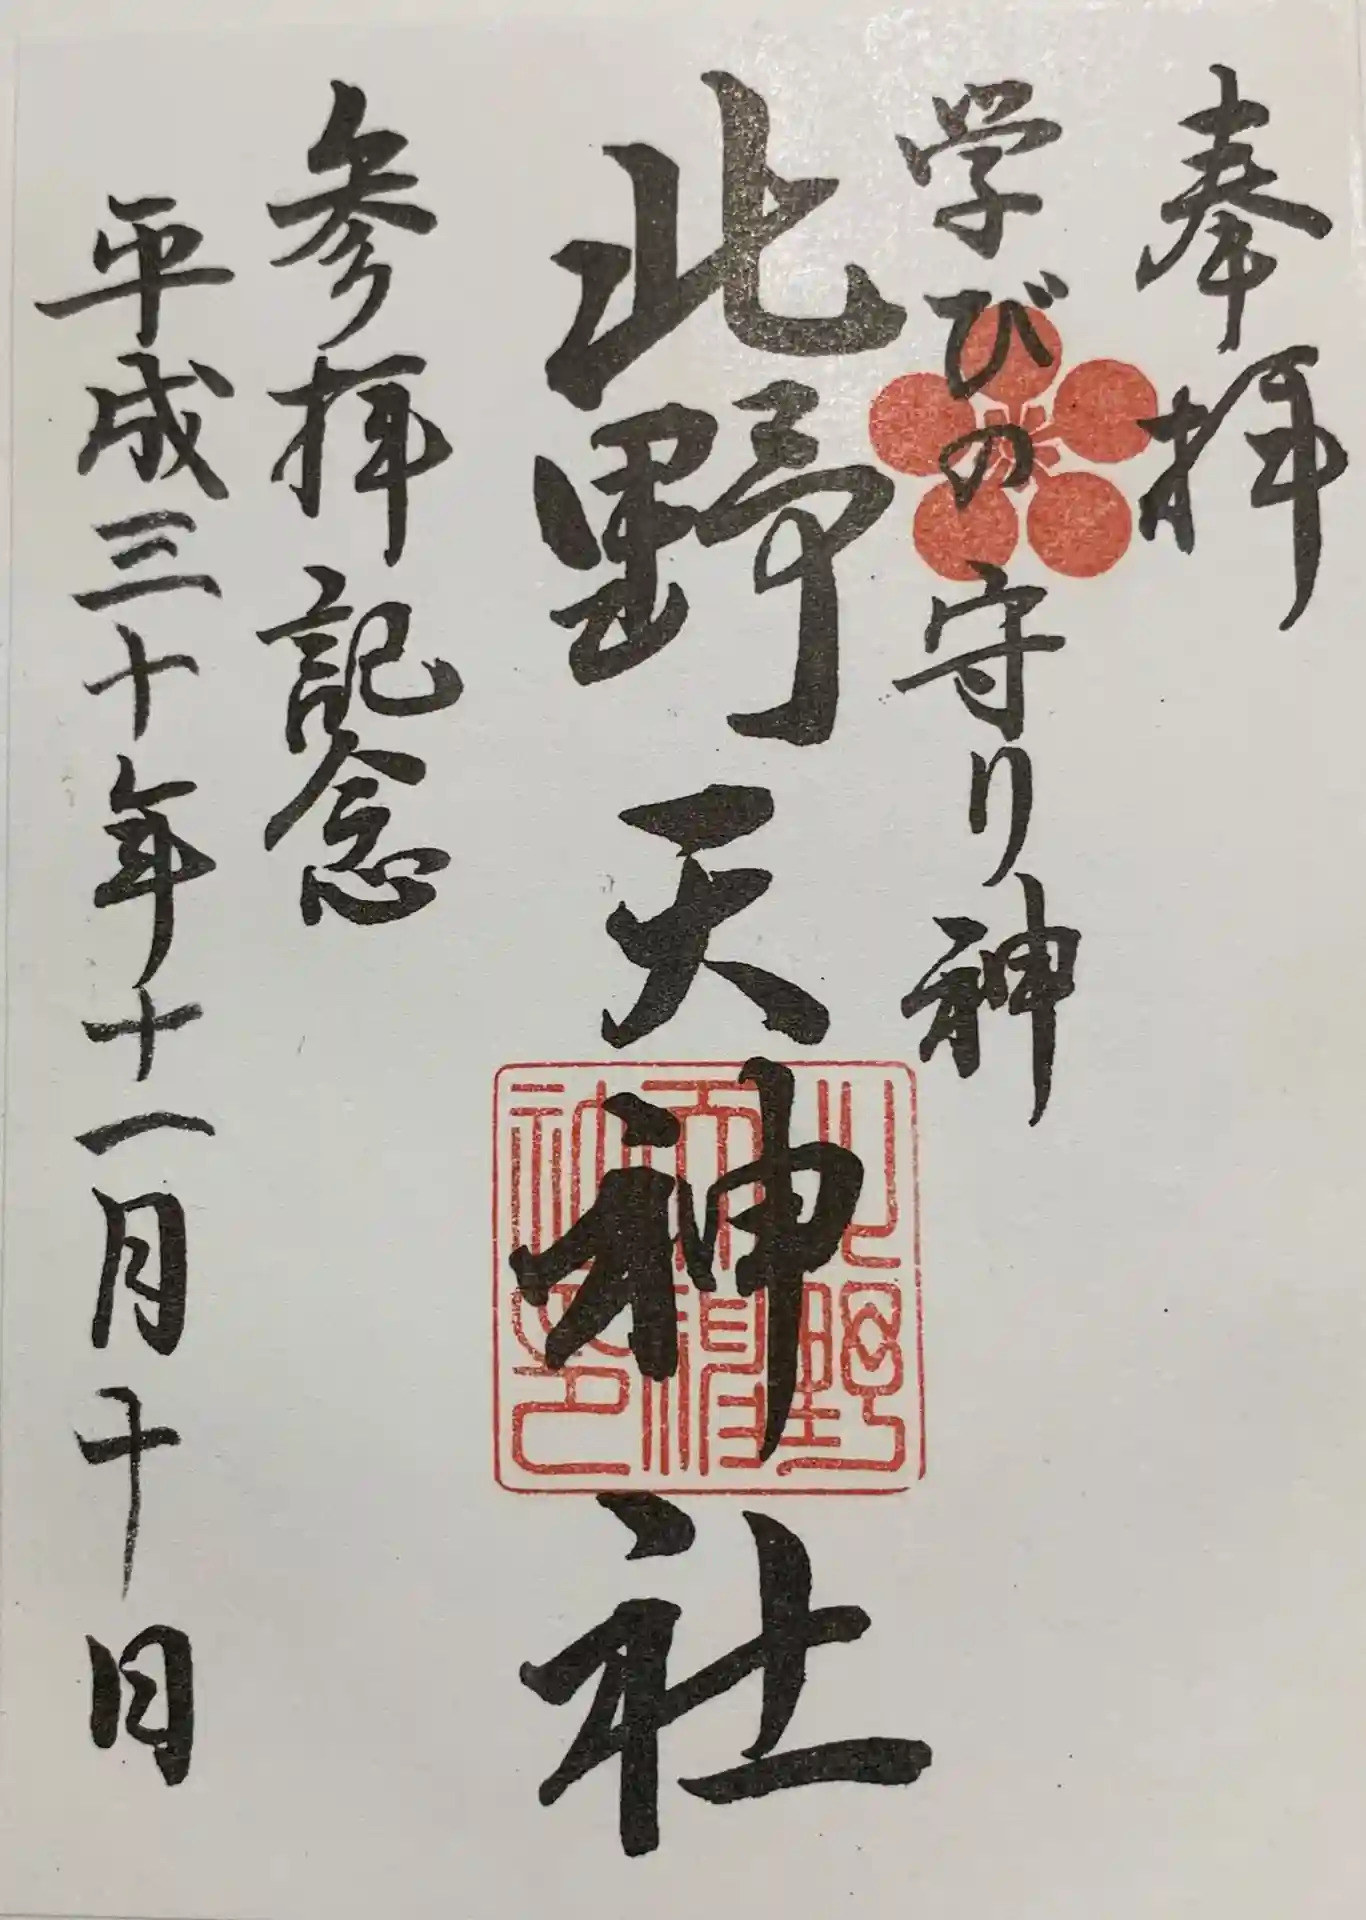 奉拝
学びの守り神
北野天神社
参拝記念
平成三十年十一月十日